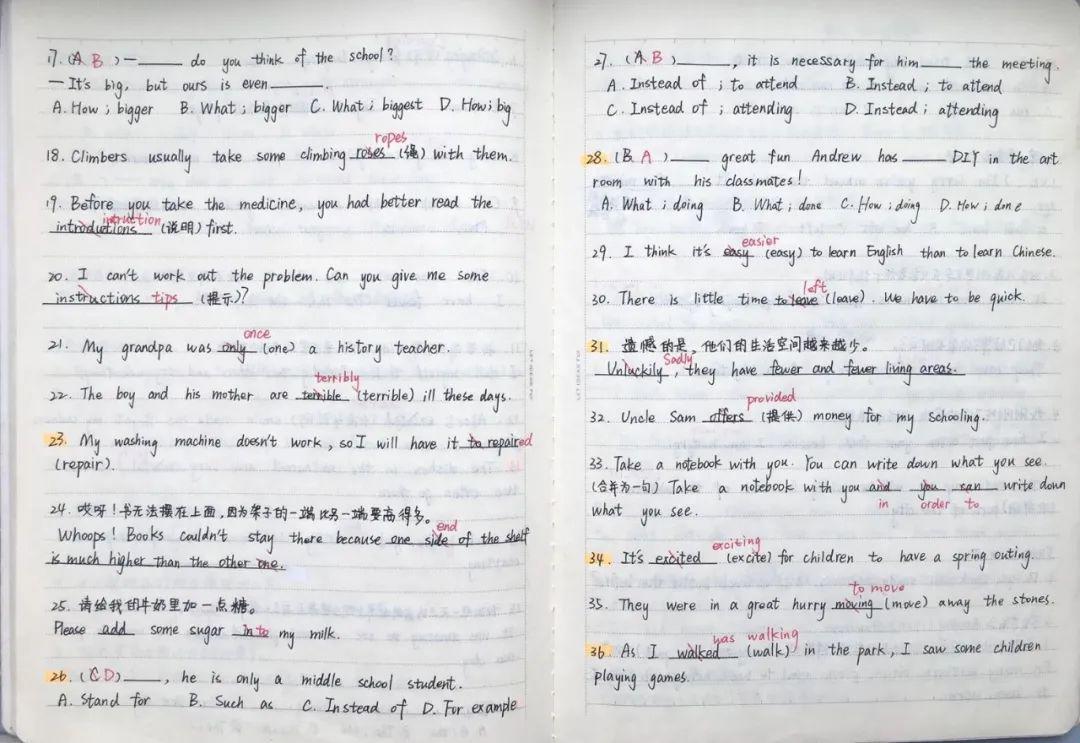 17. (A B) — ______ do you think of the school?
— It's big, but ours is even ______.
A. How ; bigger B. What ; bigger C. What ; biggest D. How ; big
ropes
18. Climbers usually take some climbing roses (绳) with them.
19. Before you take the medicine, you had better read the
intruction
introductions (说明) first.
20. I can't work out the problem. Can you give me some
instructions tips (提示)?
once
21. My grandpa was only (one) a history teacher.
terribly
22. The boy and his mother are terrible (terrible) ill these days.
23. My washing machine doesn't work, so I will have it to repaired
(repair).
24. 哎呀！书无法摆在上面，因为架子的一端比另一端要高得多。
end
Whoops! Books couldn't stay there because one side of the shelf
is much higher than the other one.
25. 请给我的牛奶里加一点糖。
Please add some sugar into my milk.
26. (C D) ______, he is only a middle school student.
A. Stand for B. Such as C. Instead of D. For example
27. (A B) ______, it is necessary for him ______ the meeting.
A. Instead of ; to attend B. Instead ; to attend
C. Instead of ; attending D. Instead ; attending
28. (B A) ______ great fun Andrew has ______ DIY in the art
room with his classmates!
A. What ; doing B. What ; done C. How ; doing D. How ; done
easier
29. I think it's easy (easy) to learn English than to learn Chinese.
left
30. There is little time to leave (leave). We have to be quick.
31. 遗憾的是，他们的生活空间越来越少。
Sadly
Unluckily, they have fewer and fewer living areas.
provided
32. Uncle Sam offers (提供) money for my schooling.
33. Take a notebook with you. You can write down what you see.
(合并为一句) Take a notebook with you and you can write down
in order to
what you see.
exciting
34. It's excited (excite) for children to have a spring outing.
to move
35. They were in a great hurry moving (move) away the stones.
was walking
36. As I walked (walk) in the park, I saw some children
playing games.